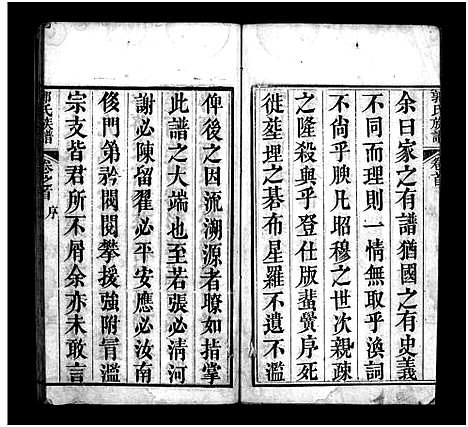 郭氏族譜
卷首
余曰家之有譜猶國之有史義
不同而理則一情無取乎渙詞
不尚乎腴凡昭穆之世次親疎
之隆殺與乎登仕版蜚黌序死
徙塟埋之碁布星羅不遺不濫
俾後之因流溯源者瞭如指掌
此譜之大端也至若張必清河
謝必陳留翟必平安應必汝南
矦門第矜閥閱攀援強附冐濫
宗支皆君所不屑余亦未敢言
郭氏族譜
卷之首
序